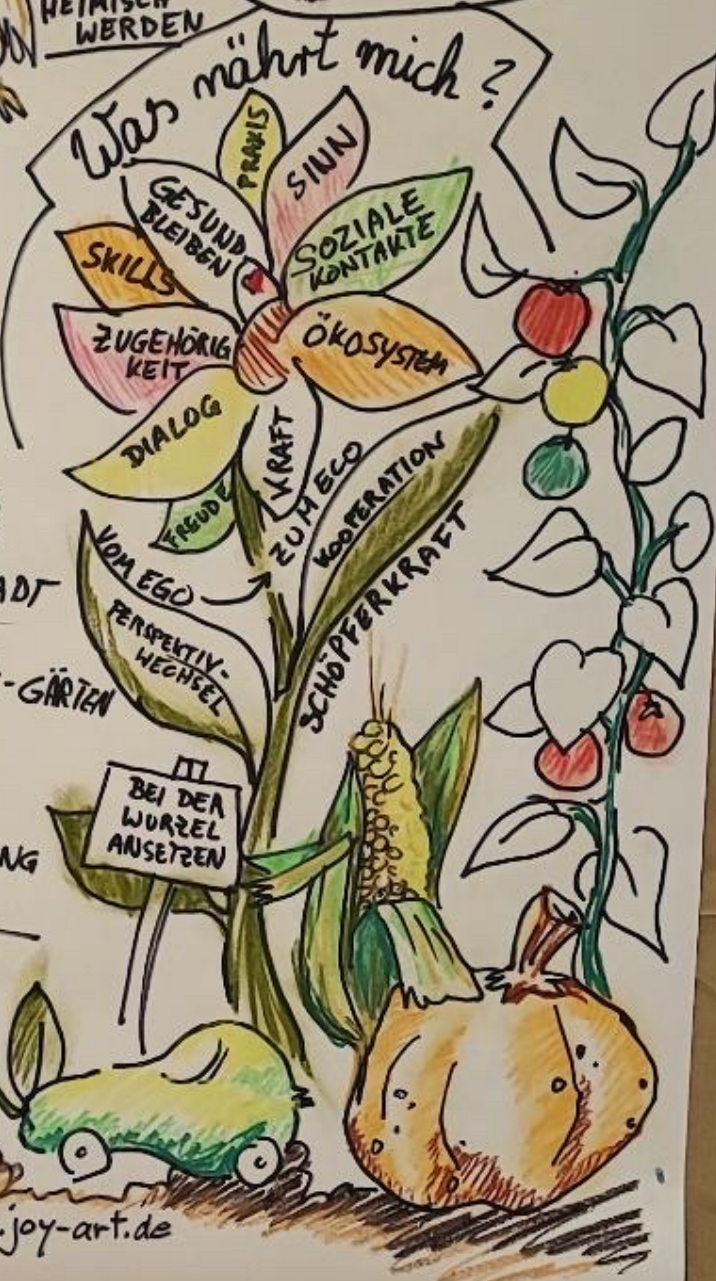 HEIMISCH
WERDEN
Was nährt mich?
PRAXIS
SINN
GESUND
BLEIBEN
SOZIALE
KONTAKTE
SKILLS
ZUGEHÖRIG
KEIT
ÖKOSYSTEM
DIALOG
KRAFT
FREUDE
VOM EGO
ZUM ECO
KOOPERATION
SCHÖPFERKRAFT
PERSPEKTIV-
WECHSEL
ADT
-GÄRTEN
BEI DER
WURZEL
ANSETZEN
NG
.joy-art.de